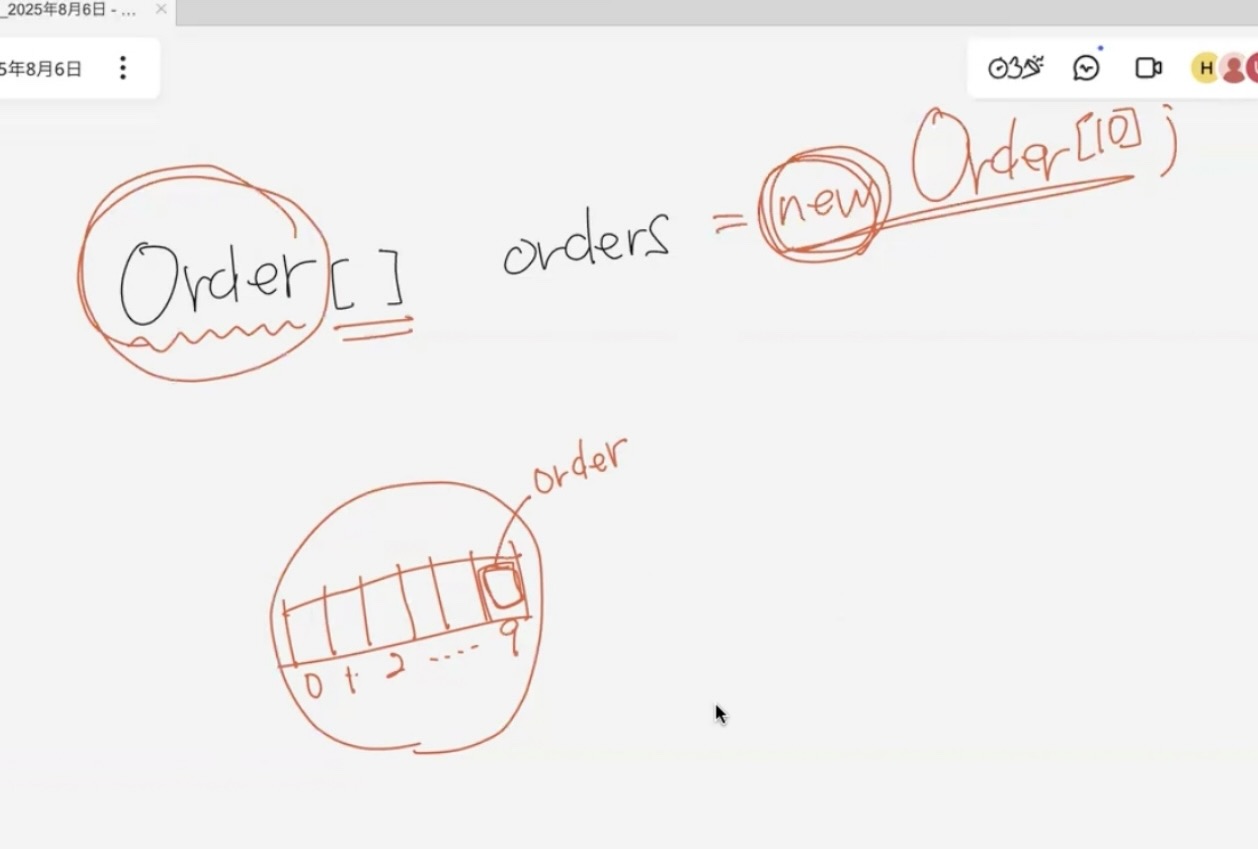 _2025年8月6日 - ...
5年8月6日
H
Order[ ] orders = new Order[10];
order
0 1 2 ..... 9